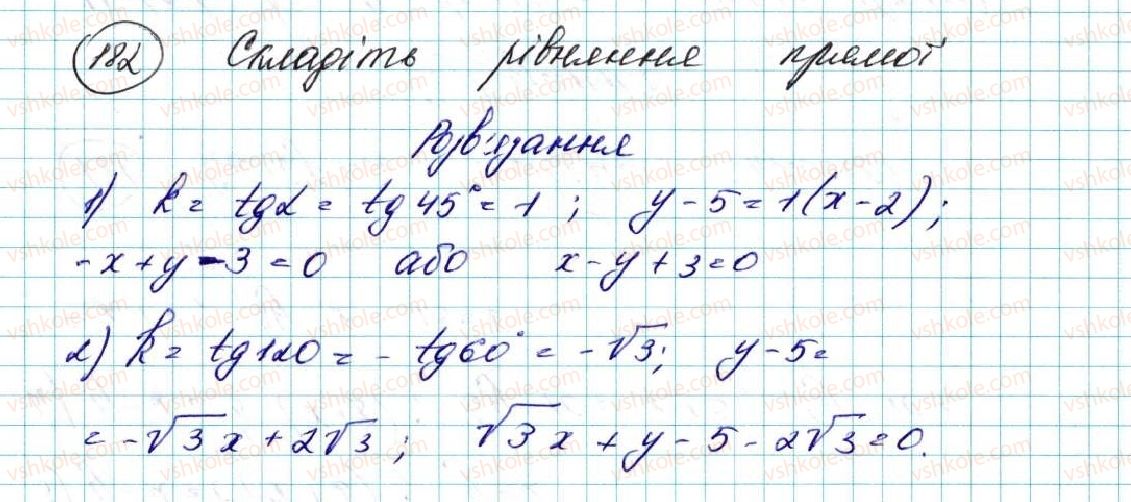 182 Складіть рівняння прямої
Розв'язання
1) k = tgα = tg 45° = 1 ; y - 5 = 1(x - 2) ;
-x + y - 3 = 0 або x - y + 3 = 0
2) k = tg120 = - tg60° = -√3; y - 5 =
= -√3x + 2√3 ; √3x + y - 5 - 2√3 = 0.